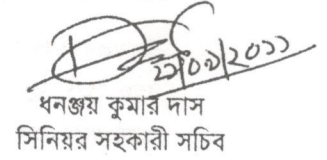 ধনঞ্জয় কুমার দাস
সিনিয়র সহকারী সচিব